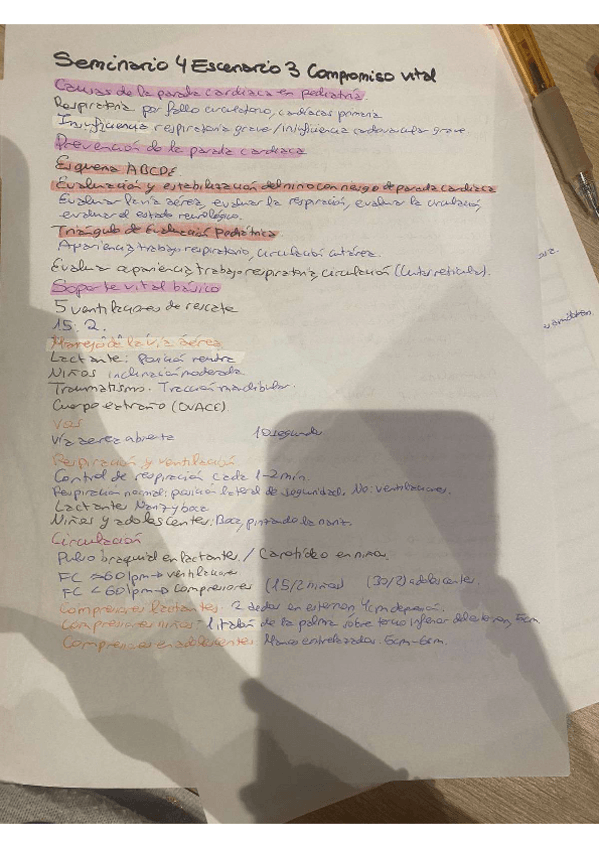 Seminario 4 Escenario 3 Compromiso vital
Causas de la parada cardiaca en pediatría.
Respiratoria por fallo circulatorio, cardíacas primaria
Insuficiencia respiratoria grave / insuficiencia cardiovascular grave.
Prevención de la parada cardiaca
Esquema ABCDE
Evaluación y estabilización del niño con riesgo de parada cardiaca
Evaluar la vía aérea, evaluar la respiración, evaluar la circulación,
evaluar el estado neurológico.
Triángulo de Evaluación Pediátrica
Apariencia, trabajo respiratorio, circulación cutánea.
Evaluar apariencia, trabajo respiratorio, circulación
Soporte vital básico
5 ventilaciones de rescate
15:2.
Manejo de la vía aérea
Lactante: Posición neutra
Niños inclinación moderada
Traumatismo. Tracción mandibular.
Cuerpo extraño (OVACE)
Vos
Vía aerea abierta 10 segundos
Respiración y ventilación
Control de respiración cada 1-2 min.
Respiración normal: posición lateral de seguridad. No: ventilaciones.
Lactantes Nariz y boca
Niños y adolescentes: Boca, pinzando la nariz.
Circulación
Pulso braquial en lactantes / Carotídeo en niños
FC ≥60 lpm → ventilaciones
FC < 60 lpm → compresiones (15/2 niños) (30/2) adolescentes.
Compresiones lactantes. 2 dedos en esternón, 4cm depresión.
Compresiones niños. 1 talón de la palma sobre tercio inferior del esternón, 5cm.
Compresiones en adolescentes. Manos entrelazadas. 5cm-6cm.